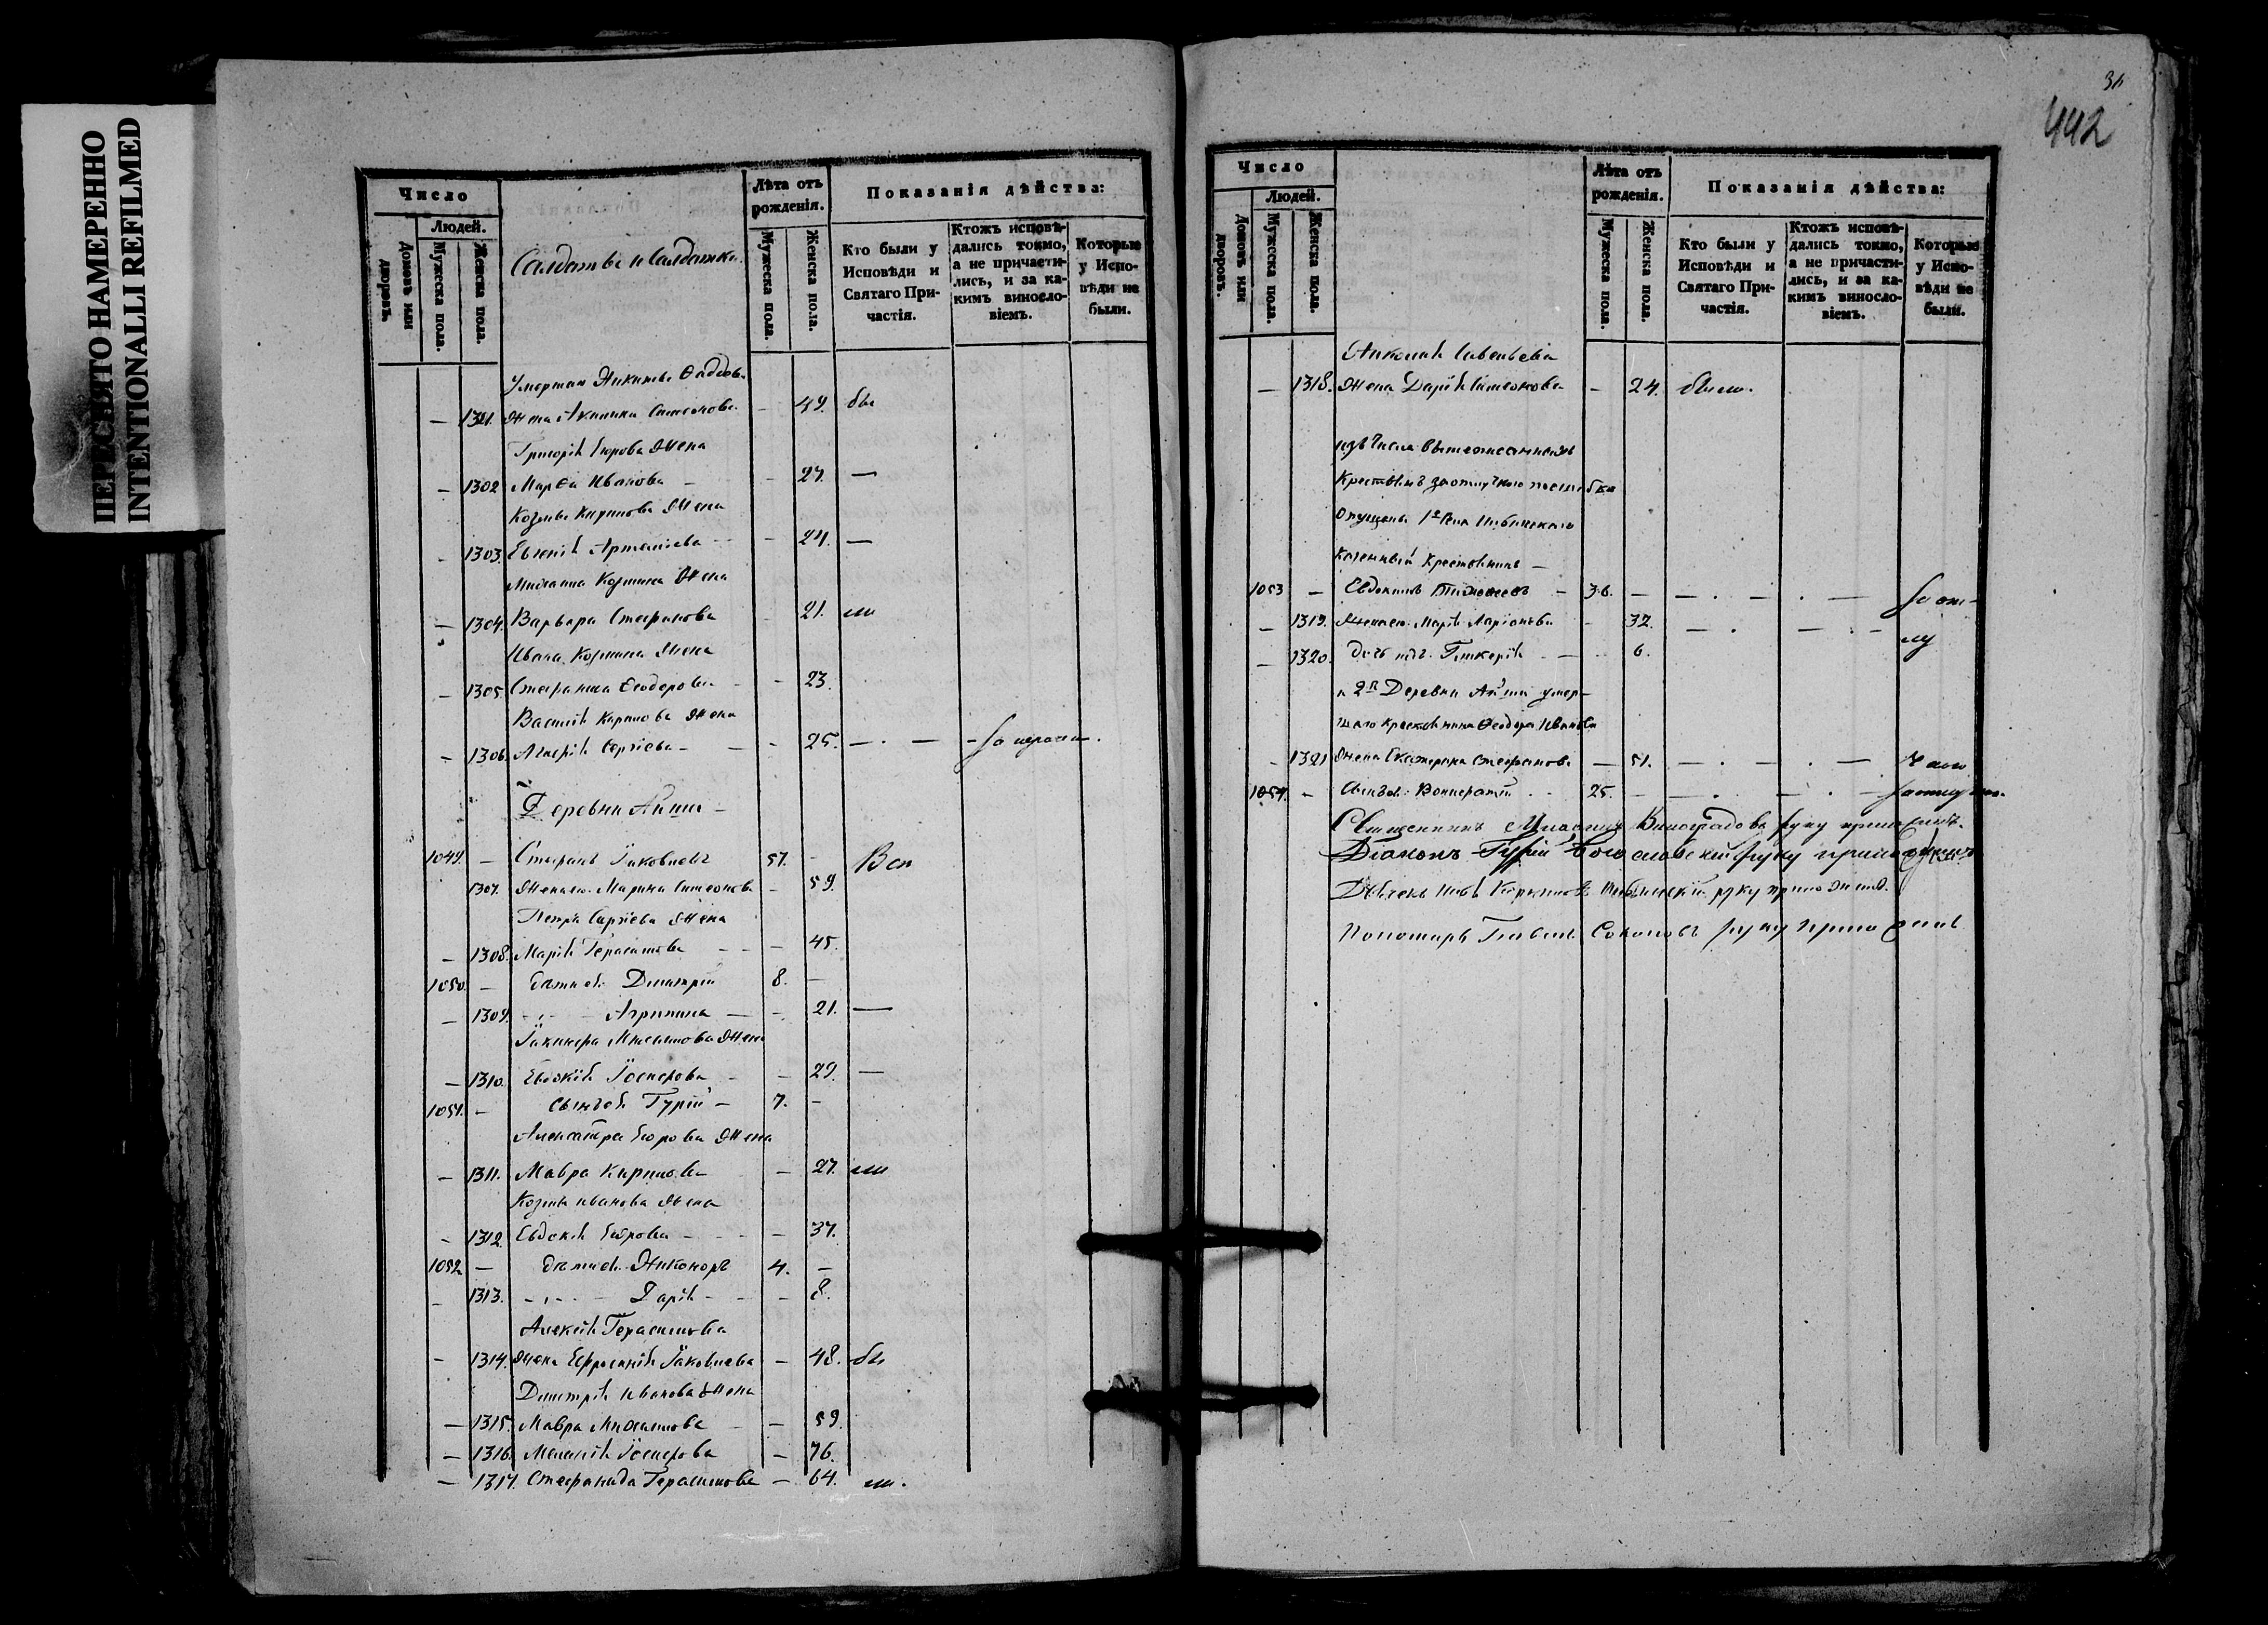 ПЕРЕСНЯТО НАМЕРЕННО
INTENTIONALLI REFILMED
Число
Людей.
Домовъ или дворовъ.
Мужеска пола.
Женска пола.
Солдаты и Солдатки
Лѣта отъ рожденія.
Мужеска пола.
Женска пола.
Показанія дѣйства:
Кто были у Исповѣди и Святаго Причастія.
Ктожъ исповѣдались токмо, а не причастились, и за какимъ винословіемъ.
Которые у Исповѣди не были.
Никиты Фадѣева
— жена Акилина Симеонова — 49. бы
Григорія Егорова жена
— 1302 Марѳа Иванова — 27. —
Козмы Кирилова жена
— 1303. Евгенія Артемьева — 24. —
Михаила Козмина жена
— 1304. Варвара Стефанова — 21. ли
Ивана Козмина жена
— 1305. Ѳеодорова — 23.
Василія Карпова жена
— 1306. Сергіева — 25. — —
Деревни Айши —
1049. — Стефанъ Іаковлевъ 57. — Вси
1307. жена ею Марина Симеонова — 59.
Петра Сергіева жена
— 1308. Марія Герасимова — 45.
1050. — дѣти ея Димитрій 8. —
— 1309. Агрипина — 21. —
Максимова жена
— 1310. Іосифова — 29. —
1051. — сынъ ея Гурій — 7. —
Александра Егорова жена
— 1311. Мавра Кирилова — 27. ли
Козмы Иванова жена
— 1312. Евдокія Егорова — 37.
1052 — дѣти ея Никоноръ 4. —
— 1313. Дарія — 8.
Алексѣя Герасимова
— 1314. жена Ефросинія Іаковлева — 48. бы
Димитрія Иванова жена
— 1315. Мавра Максимова — 59.
— 1316. Меланія Іосифова — 76.
— 1317. Стефанида Герасимова — 64. ли.
442
Число
Людей.
Домовъ или дворовъ.
Мужеска пола.
Женска пола.
Лѣта отъ рожденія.
Мужеска пола.
Женска пола.
Показанія дѣйства:
Кто были у Исповѣди и Святаго Причастія.
Ктожъ исповѣдались токмо, а не причастились, и за какимъ винословіемъ.
Которые у Исповѣди не были.
Савельева
— 1318. жена Дарія Симеонова — 24. были.
изъ числа вышеписанныхъ
крестьянъ за отлучкою
опущены 1е Села
казенный крестьянинъ —
1053 — Евдокимъ Тимоѳеевъ — 36. — — за от-
— 1319. жена ею Марія Ларіонова — 32. — — лу
— 1320. дочь ихъ Гликерія — 6.
и 2я Деревни Айши умер-
шаго крестьянина Ѳеодора Иванова
— 1321 жена Екатерина Стефанова — 51. — — чкою
1054. — сынъ ея 25. — — за отлучкою.
Священникъ Виноградовъ руку приложилъ.
Діаконъ Гурій Богословскій руку приложилъ
Дьячекъ руку приложилъ.
Пономарь Павелъ Соколовъ руку приложилъ